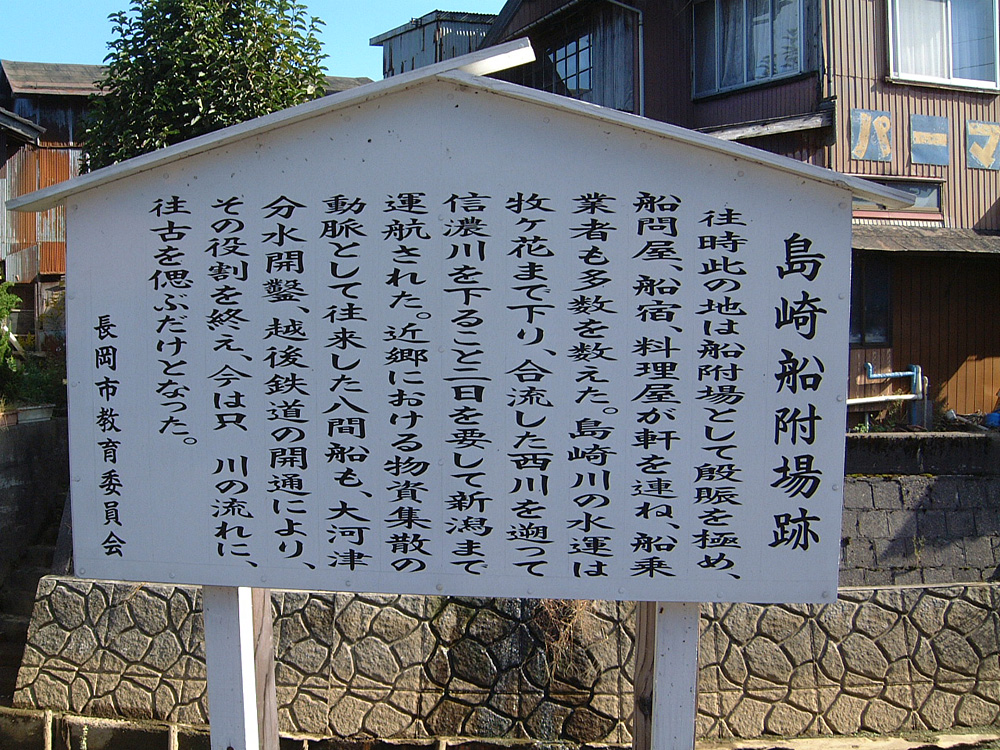 島崎船附場跡
往時此の地は船附場として殷賑を極め、
船問屋、船宿、料理屋が軒を連ね、船乗
業者も多数を数えた。島崎川の水運は
牧ヶ花まで下り、合流した西川を遡って
信濃川を下ること二日を要して新潟まで
運航された。近郷における物資集散の
動脈として往来した八間船も、大河津
分水開鑿、越後鉄道の開通により、
その役割を終え、今は只　川の流れに、
往古を偲ぶだけとなった。
長岡市教育委員会
パーマ